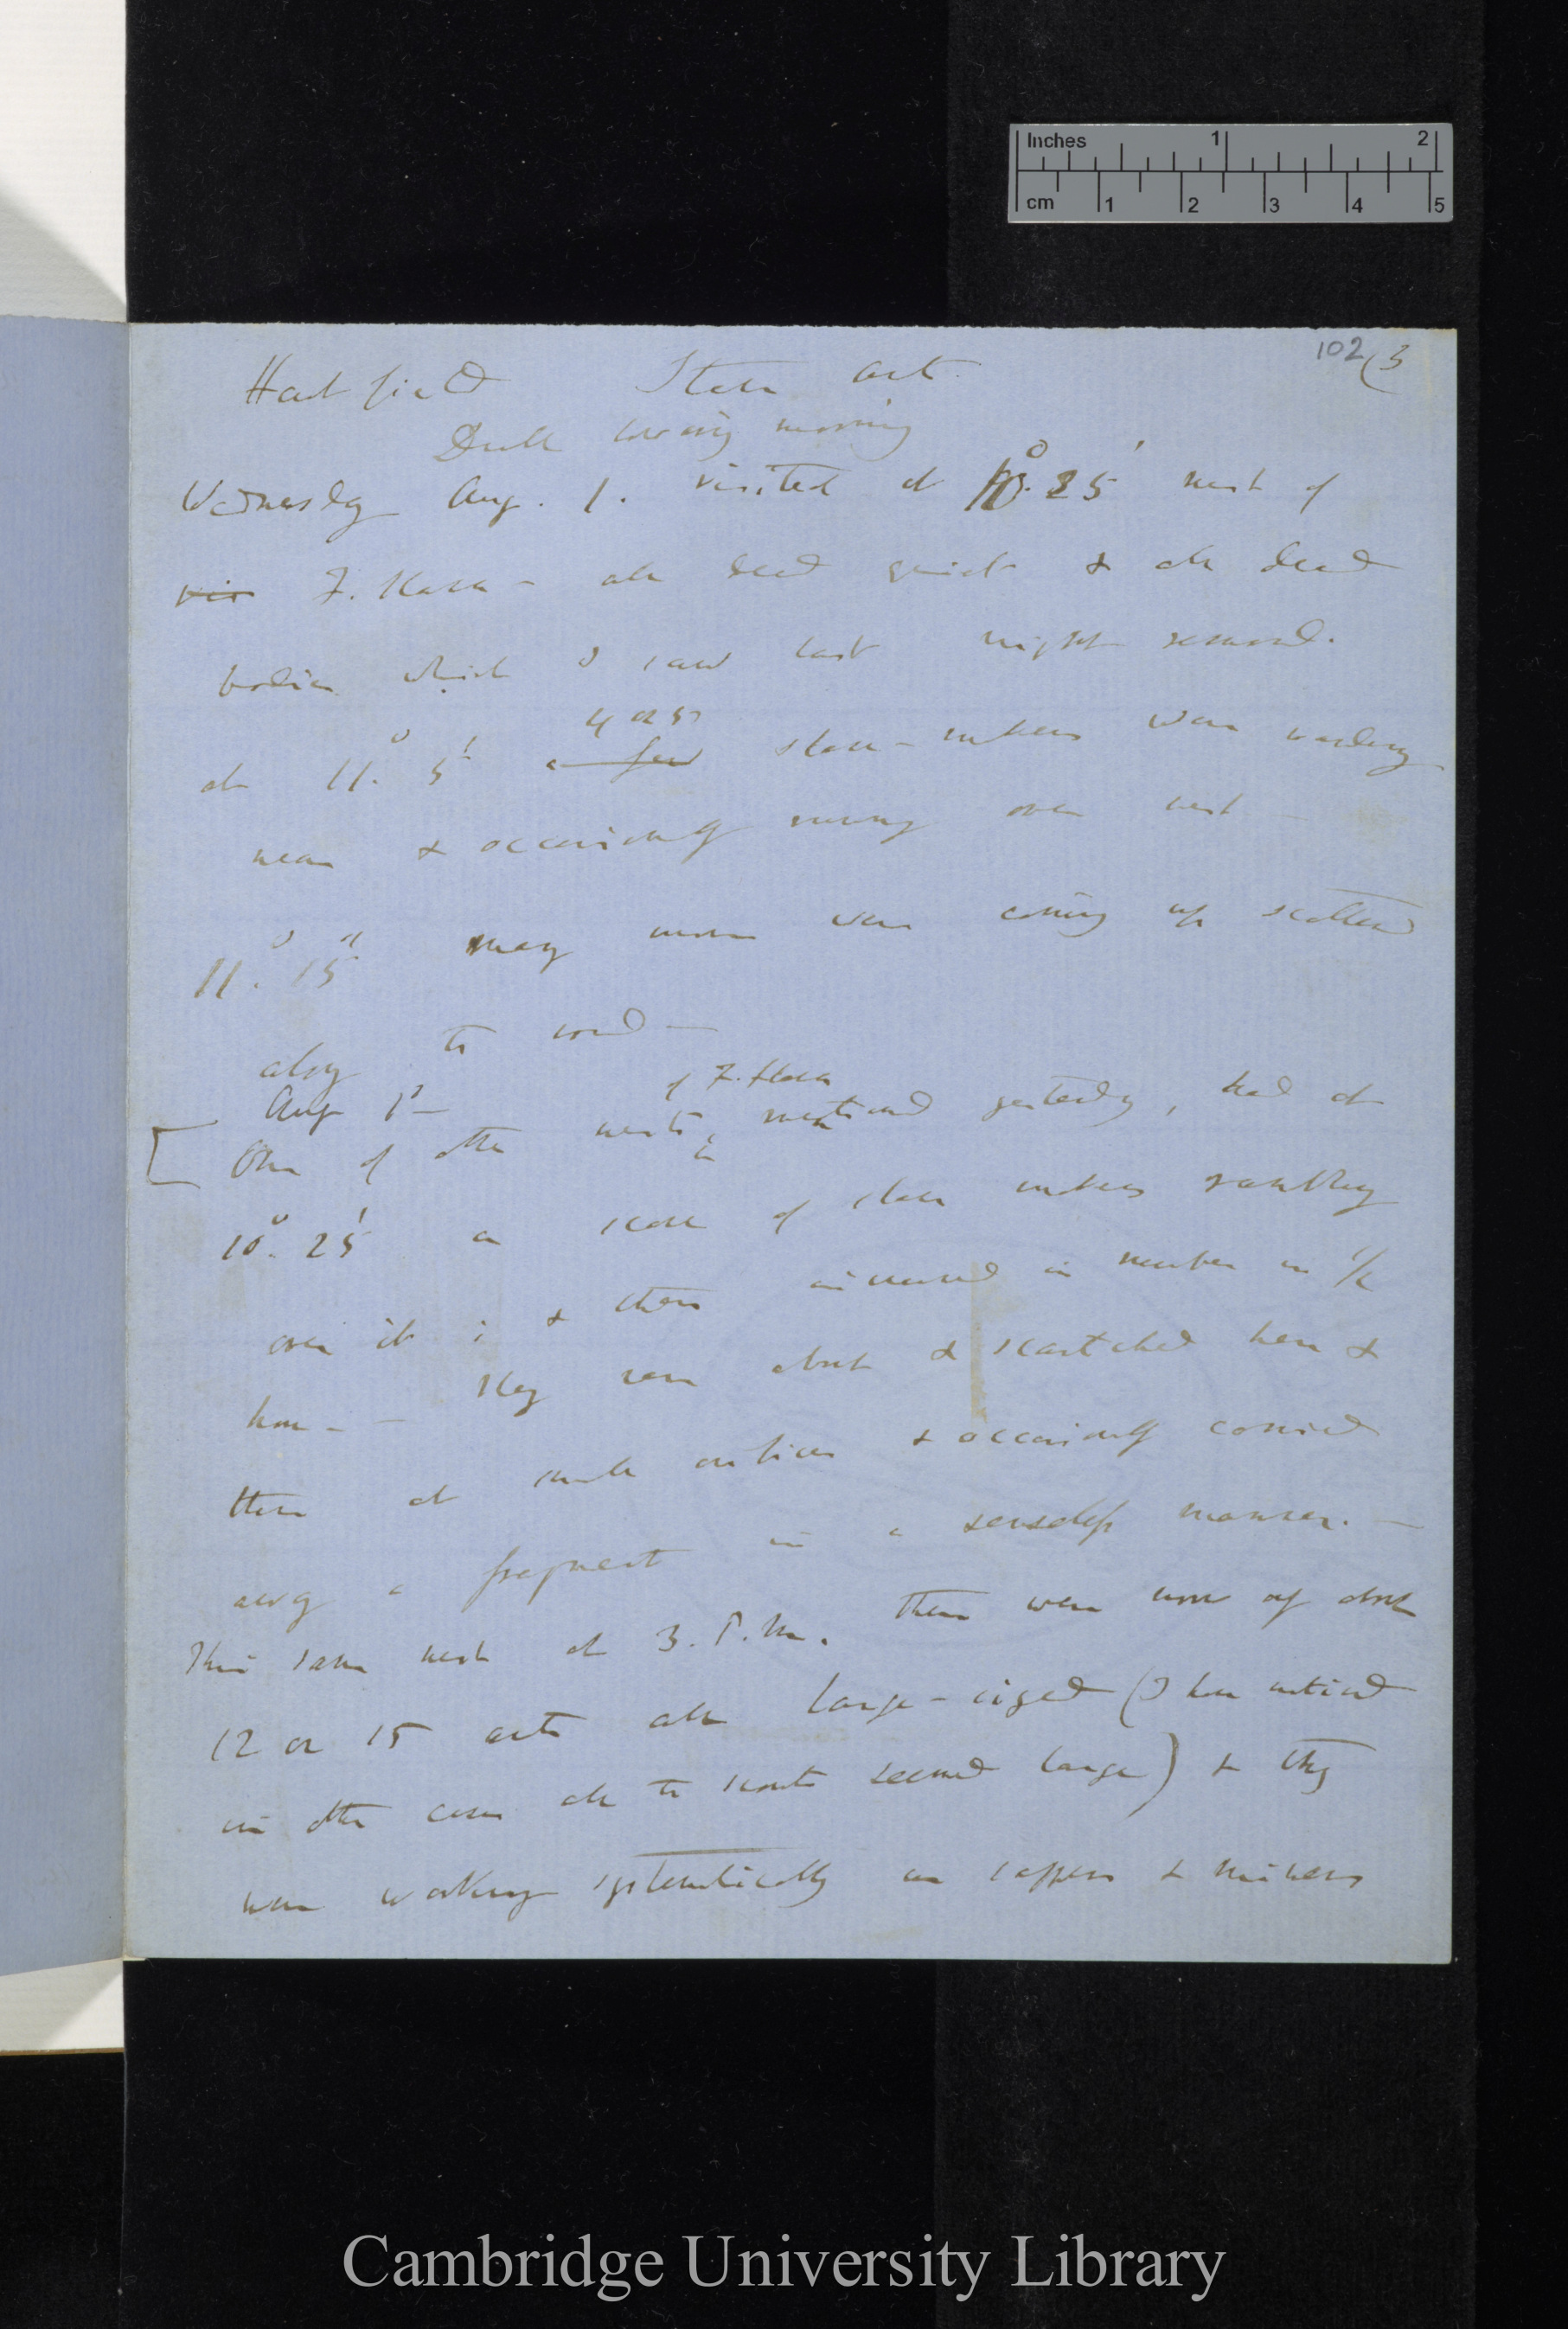 Inches 1 2
cm 1 2 3 4 5
102 (3
Hartfield Slave Ant.
Dull lowering morning
Wednesday Aug. 1. visited at 10°. 25' nest of
F. flava – all dead quiet & all dead
bodies which I saw last night removed.
4 or 5
at 11°. 5' a few slave-makers were wandering
near & occasionally running over nest –
11°. 15" many more were coming up scattered
along the road —
Aug 1st —
of F. flava
[ One of the nests mentioned yesterday, had at
10°. 25' a score of slave makers rambling
over it ; & these increased in number in 1/2
hour – — they ran about & scartched here &
there at small orifices & occasionally carried
away a fragment in a senseless manner. —
This same nest at 3. P.m. there were now only about
12 or 15 ants all large-sized (I have noticed
in other cases all the scouts seemed large) & they
were working systematically as sappers & miners
Cambridge University Library